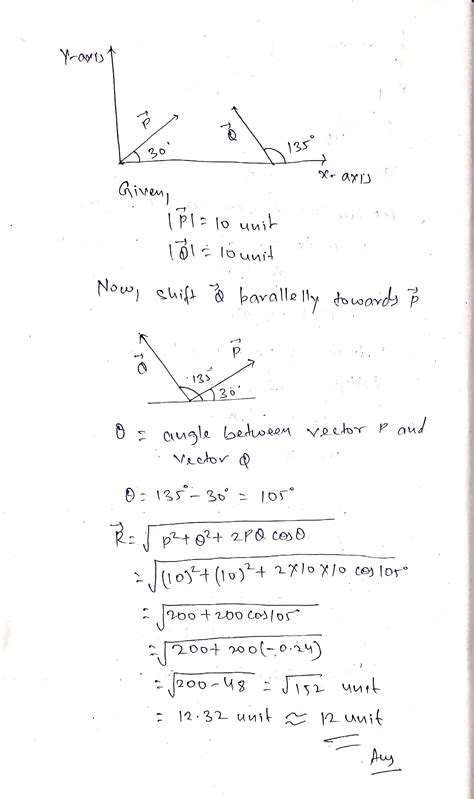 Y-axis
P⃗
30°
Q⃗
135°
x-axis
Given,
|P⃗| = 10 unit
|Q⃗| = 10 unit
Now, shift Q⃗ parallelly towards P⃗
Q⃗
135°
P⃗
30°
θ = angle between vector P and
vector Q
θ = 135° - 30° = 105°
R⃗ = √(P² + Q² + 2PQ cosθ)
= √((10)² + (10)² + 2×10×10 cos 105°)
= √(200 + 200 cos 105°)
= √(200 + 200(-0.24))
= √(200 - 48) = √152 unit
= 12.32 unit ≈ 12 unit
Ans